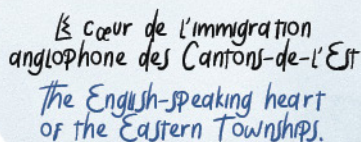 Le cœur de l'immigration
anglophone des Cantons-de-l'Est
The English-speaking heart
of the Eastern Townships.